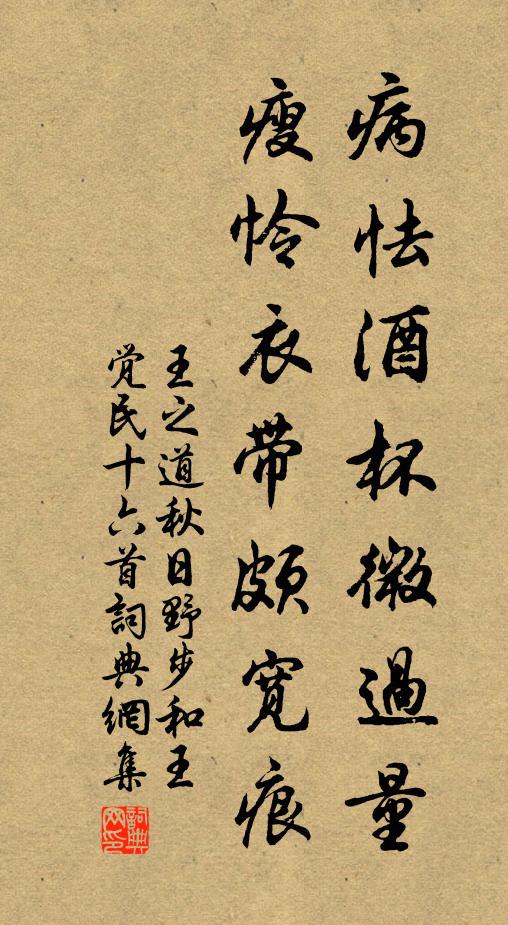 病怯酒杯微過量
瘦怜衣帶頗寬痕
王之道秋日野步和王
觉民十六首詞典網集
詞典网印